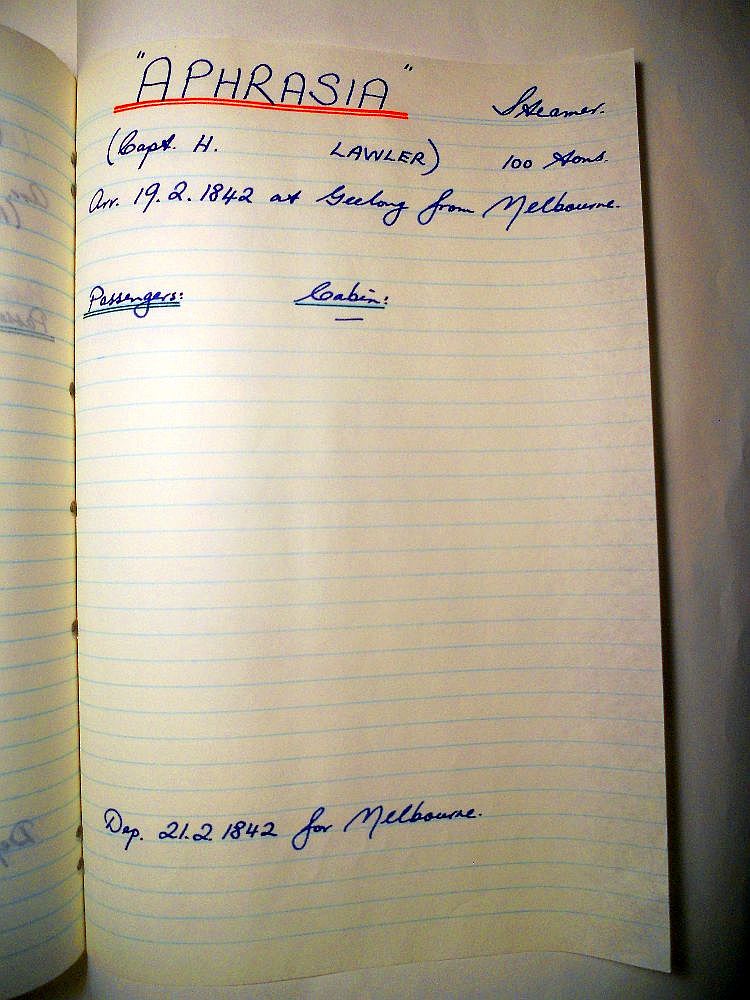 "APHRASIA" Steamer.
(Capt. H. LAWLER) 100 tons.
Arr. 19.2.1842 at Geelong from Melbourne.
Passengers: Cabin:
—
Dep. 21.2.1842 for Melbourne.